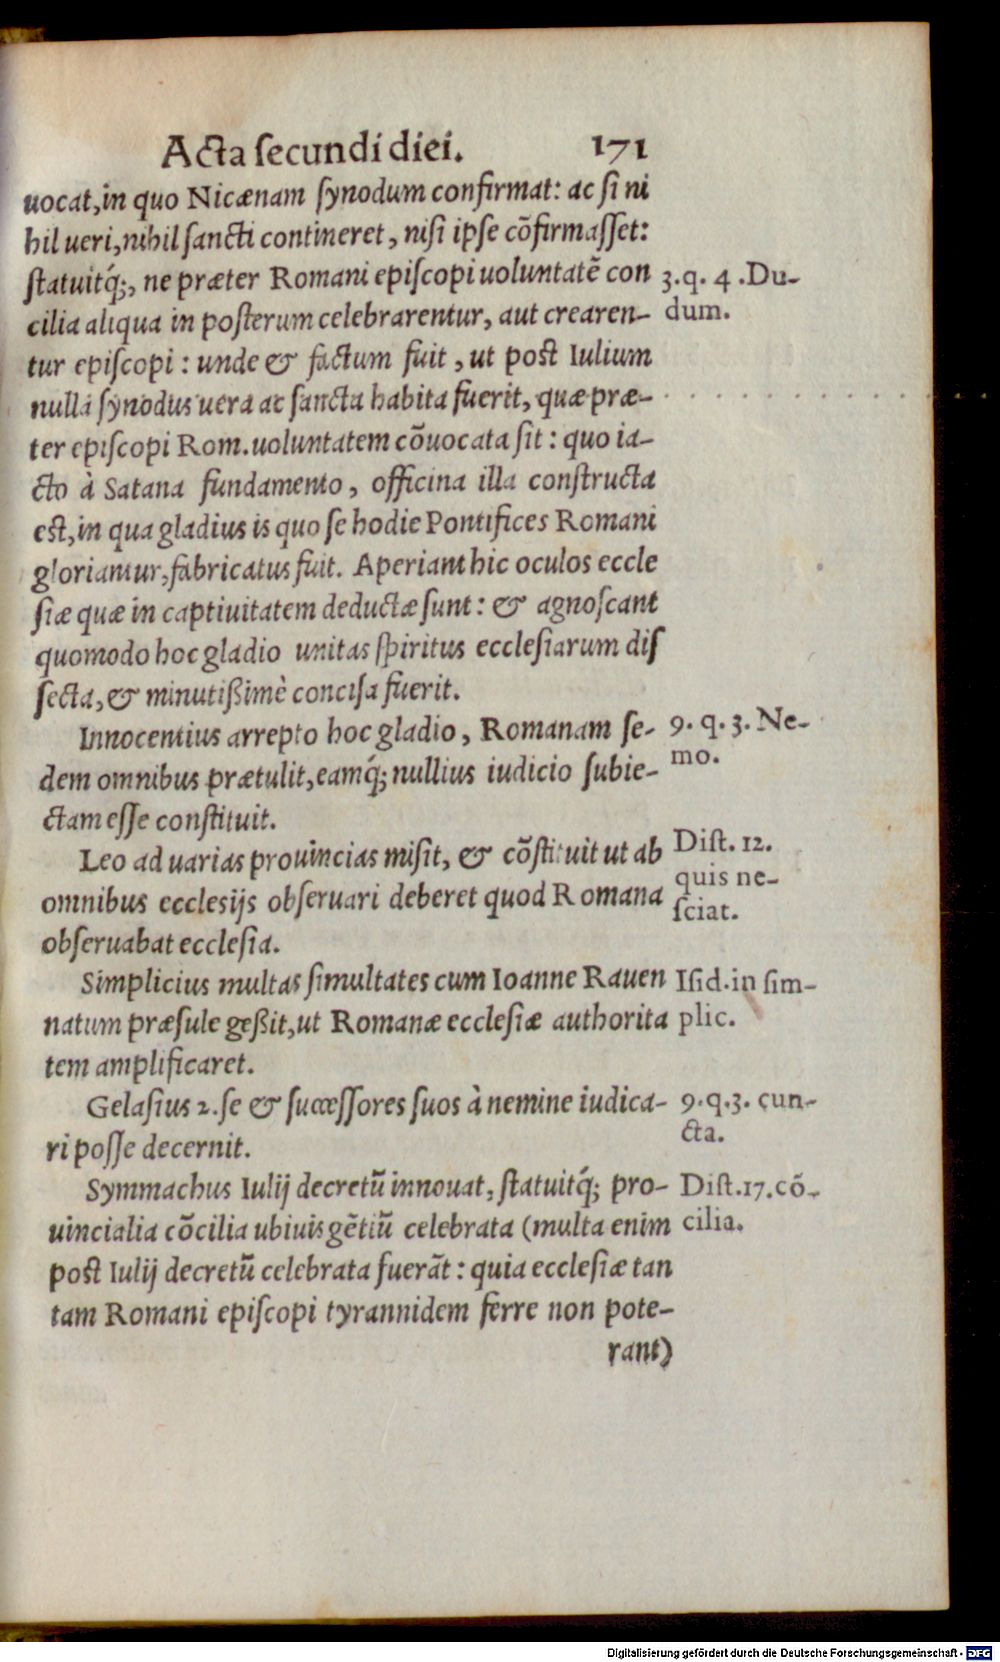 Acta ſecundi diei. 171
uocat, in quo Nicænam ſynodum confirmat: ac ſi ni
hil ueri, nihil ſancti contineret, niſi ipſe cõfirmaſſet:
ſtatuitq́;, ne præter Romani epiſcopi uoluntatē con
3.q. 4 .Du-
cilia aliqua in poſterum celebrarentur, aut crearen-
dum.
tur epiſcopi: unde & factum fuit, ut post Iulium
nulla ſynodus uera ac ſancta habita fuerit, quæ præ-
ter epiſcopi Rom. uoluntatem cõuocata ſit: quo ia-
cto à Satana fundamento, officina illa conſtructa
est, in qua gladius is quo ſe hodie Pontifices Romani
gloriantur, fabricatus fuit. Aperiant hic oculos eccle
ſiæ quæ in captiuitatem deductæ ſunt: & agnoſcant
quomodo hoc gladio unitas ſpiritus ecclesiarum diſ
ſecta, & minutißimè conciſa fuerit.
Innocentius arrepto hoc gladio, Romanam ſe-
9. q. 3. Ne-
dem omnibus prætulit, eamq́; nullius iudicio ſubie-
mo.
ctam eſſe conſtituit.
Leo ad uarias prouincias miſit, & cõſtituit ut ab
Diſt. 12.
omnibus ecclesijs obſeruari deberet quod Romana
quis ne-
obſeruabat eccleſia.
ſciat.
Simplicius multas ſimultates cum Ioanne Rauen
Iſid.in ſim-
natum præſule geßit, ut Romanæ eccleſiæ authorita
plic.
tem amplificaret.
Gelaſius 2. ſe & ſucceſſores ſuos à nemine iudica-
9.q.3. cun-
ri poſſe decernit.
cta.
Symmachus Iulij decretū innouat, ſtatuitq́; pro-
Diſt.17.cõ-
uincialia cõcilia ubiuis gētiū celebrata (multa enim
cilia.
post Iulij decretū celebrata fuerāt: quia eccleſiæ tan
tam Romani epiſcopi tyrannidem ferre non pote-
rant)
Digitalisierung gefördert durch die Deutsche Forschungsgemeinschaft - DFG